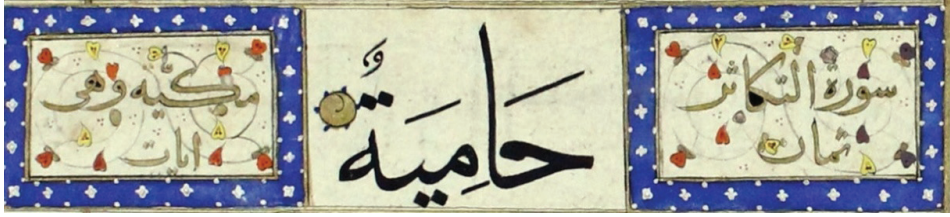 سورة التكاثر
ثمان
حَامِيَةٌ
مكية وهى
ايات